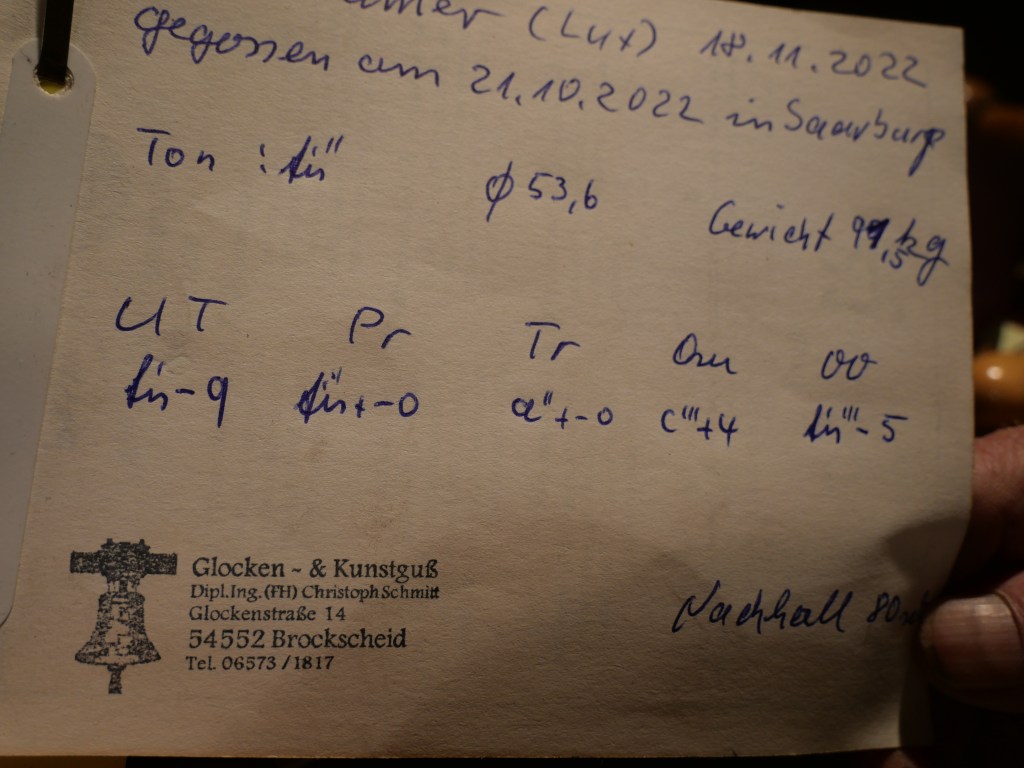 (Lux) 18.11.2022
gegossen am 21.10.2022 in Saarburg
Ton : fis" ϕ 53,6 Gewicht 99,5 kg
UT Pr Tr Qu OO
fis-9 fis"+-0 a"+-0 c'''+4 fis'''-5
Glocken - & Kunstguß
Dipl.Ing.(FH) Christoph Schmitt
Glockenstraße 14
54552 Brockscheid
Tel. 06573 / 1817
Nachhall 80